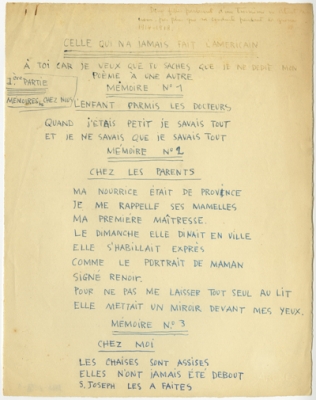 CELLE QUI N'A JAMAIS FAIT L'AMERICAIN
À TOI CAR JE VEUX QUE TU SACHES QUE JE NE DEDIE MON
POÈME À UNE AUTRE
1ÈRE PARTIE
MEMOIRES CHEZ MOI
MÉMOIRE N° 1
L'ENFANT PARMIS LES DOCTEURS
QUAND J'ETAIS PETIT JE SAVAIS TOUT
ET JE NE SAVAIS QUE JE SAVAIS TOUT
MÉMOIRE N° 2
CHEZ LES PARENTS
MA NOURRICE ÉTAIT DE PROVENCE
JE ME RAPPELLE SES MAMELLES
MA PREMIÈRE MAÎTRESSE.
LE DIMANCHE ELLE DINAIT EN VILLE
ELLE S'HABILLAIT EXPRÉS
COMME LE PORTRAIT DE MAMAN
SIGNÉ RENOIR.
POUR NE PAS ME LAISSER TOUT SEUL AU LIT
ELLE METTAIT UN MIROIR DEVANT MES YEUX.
MÉMOIRE N° 3
CHEZ MOI
LES CHAISES SONT ASSISES
ELLES N'ONT JAMAIS ÉTÉ DEBOUT
S. JOSEPH LES A FAITES